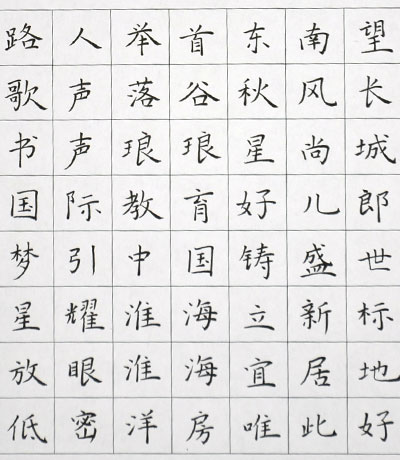 路人举首东南望
歌声落谷秋风长
书声琅琅星尚城
国际教育好儿郎
梦引中国铸盛世
星耀淮海立新标
放眼淮海宜居地
低密洋房唯此好